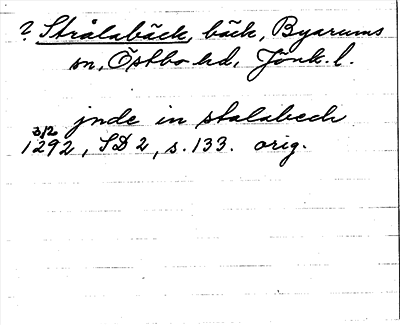 ? Strålabäck, bäck, Byarums
sn, Östbo hd, Jönk. l.
jnde in stalabech
3/2 1292, SD 2, s. 133. orig.